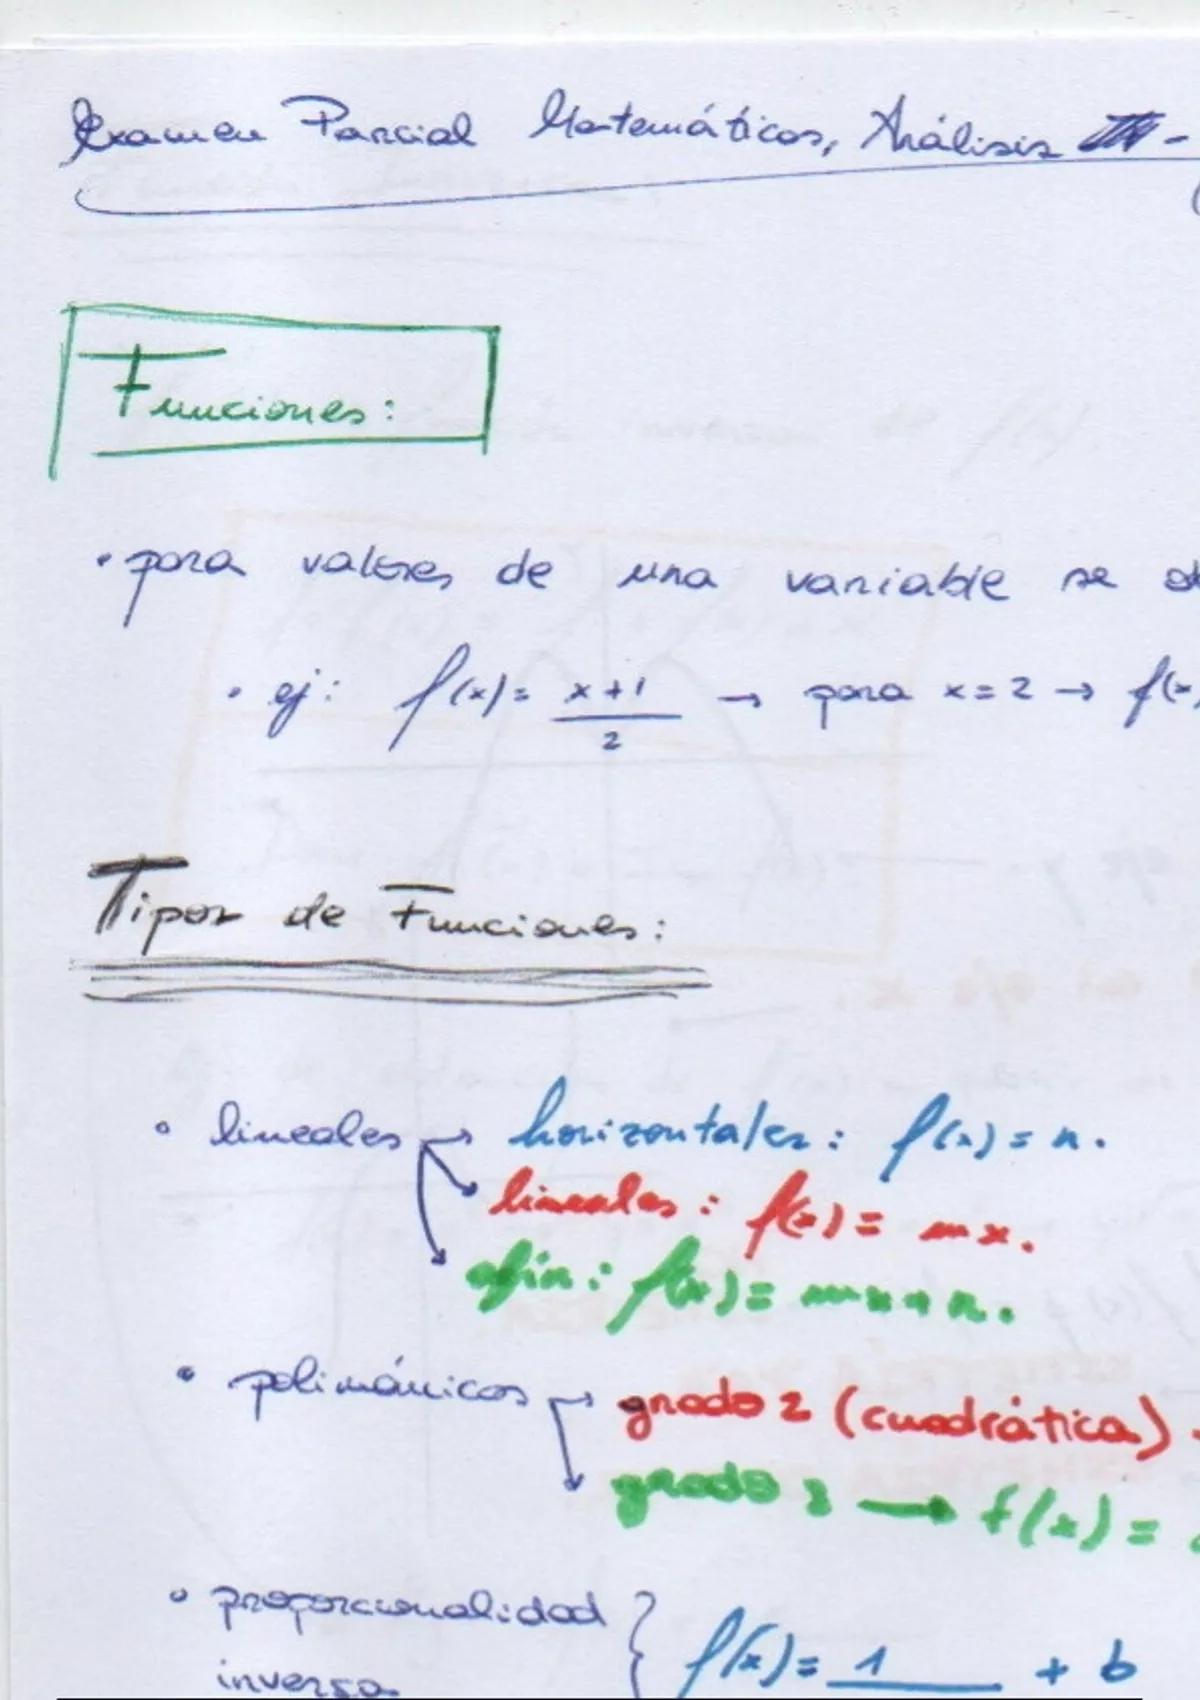 Examen Parcial Matemáticas, Análisis
Funciones:
• para valores de una variable se
• ej: f(x) = x+1/2 → para x=2 → f(x
Tipos de Funciones:
• lineales → horizontales: f(x) = n.
lineales: f(x) = mx.
afín: f(x) = mx+n.
• polimónicas → grado 2 (cuadrática)
grado 3 → f(x) =
• proporcionalidad { f(x) = 1 + b
inversa